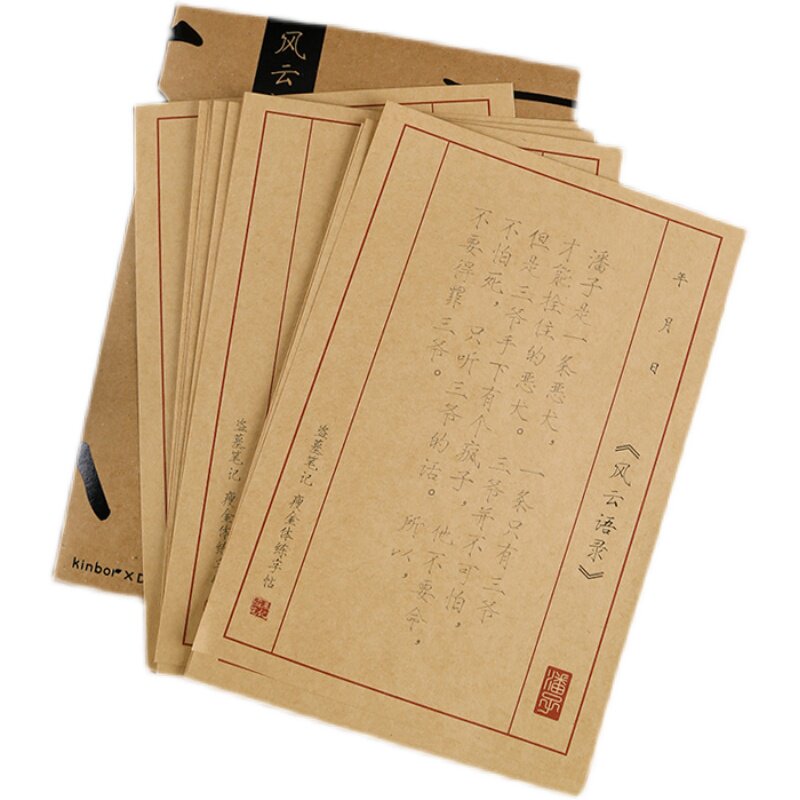 风云
年 月 日
《风云语录》
潘子
潘子是一条恶犬，一条只有三爷
才能拴住的恶犬。三爷并不可怕，
但是三爷手下有个疯子，他不要命，
不怕死，只听三爷的话。所以，
不要得罪三爷。
盗墓笔记 瘦金体练字帖
盗墓笔记 瘦金体练
kinbor × D